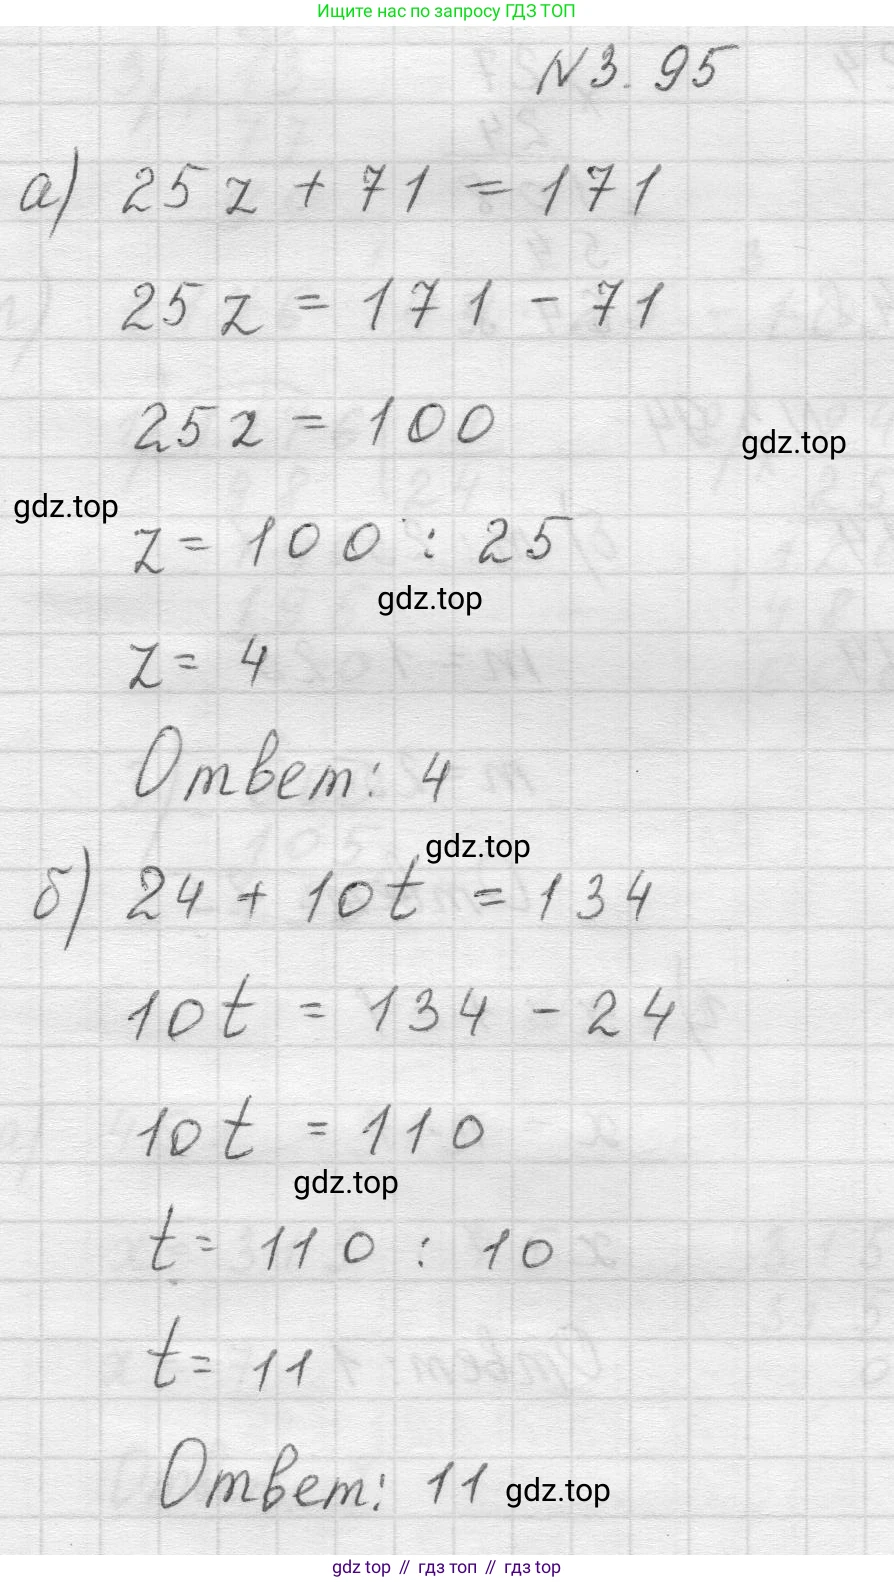 Ищите нас по запросу ГДЗ ТОП
N 3.95
а) 25z + 71 = 171
25z = 171 - 71
25z = 100
gdz.top
gdz.top
z = 100 : 25
gdz.top
z = 4
Ответ: 4
gdz.top
б) 24 + 10t = 134
10t = 134 - 24
10t = 110
gdz.top
t = 110 : 10
t = 11
Ответ: 11 gdz.top
gdz top // гдз топ // гдз top